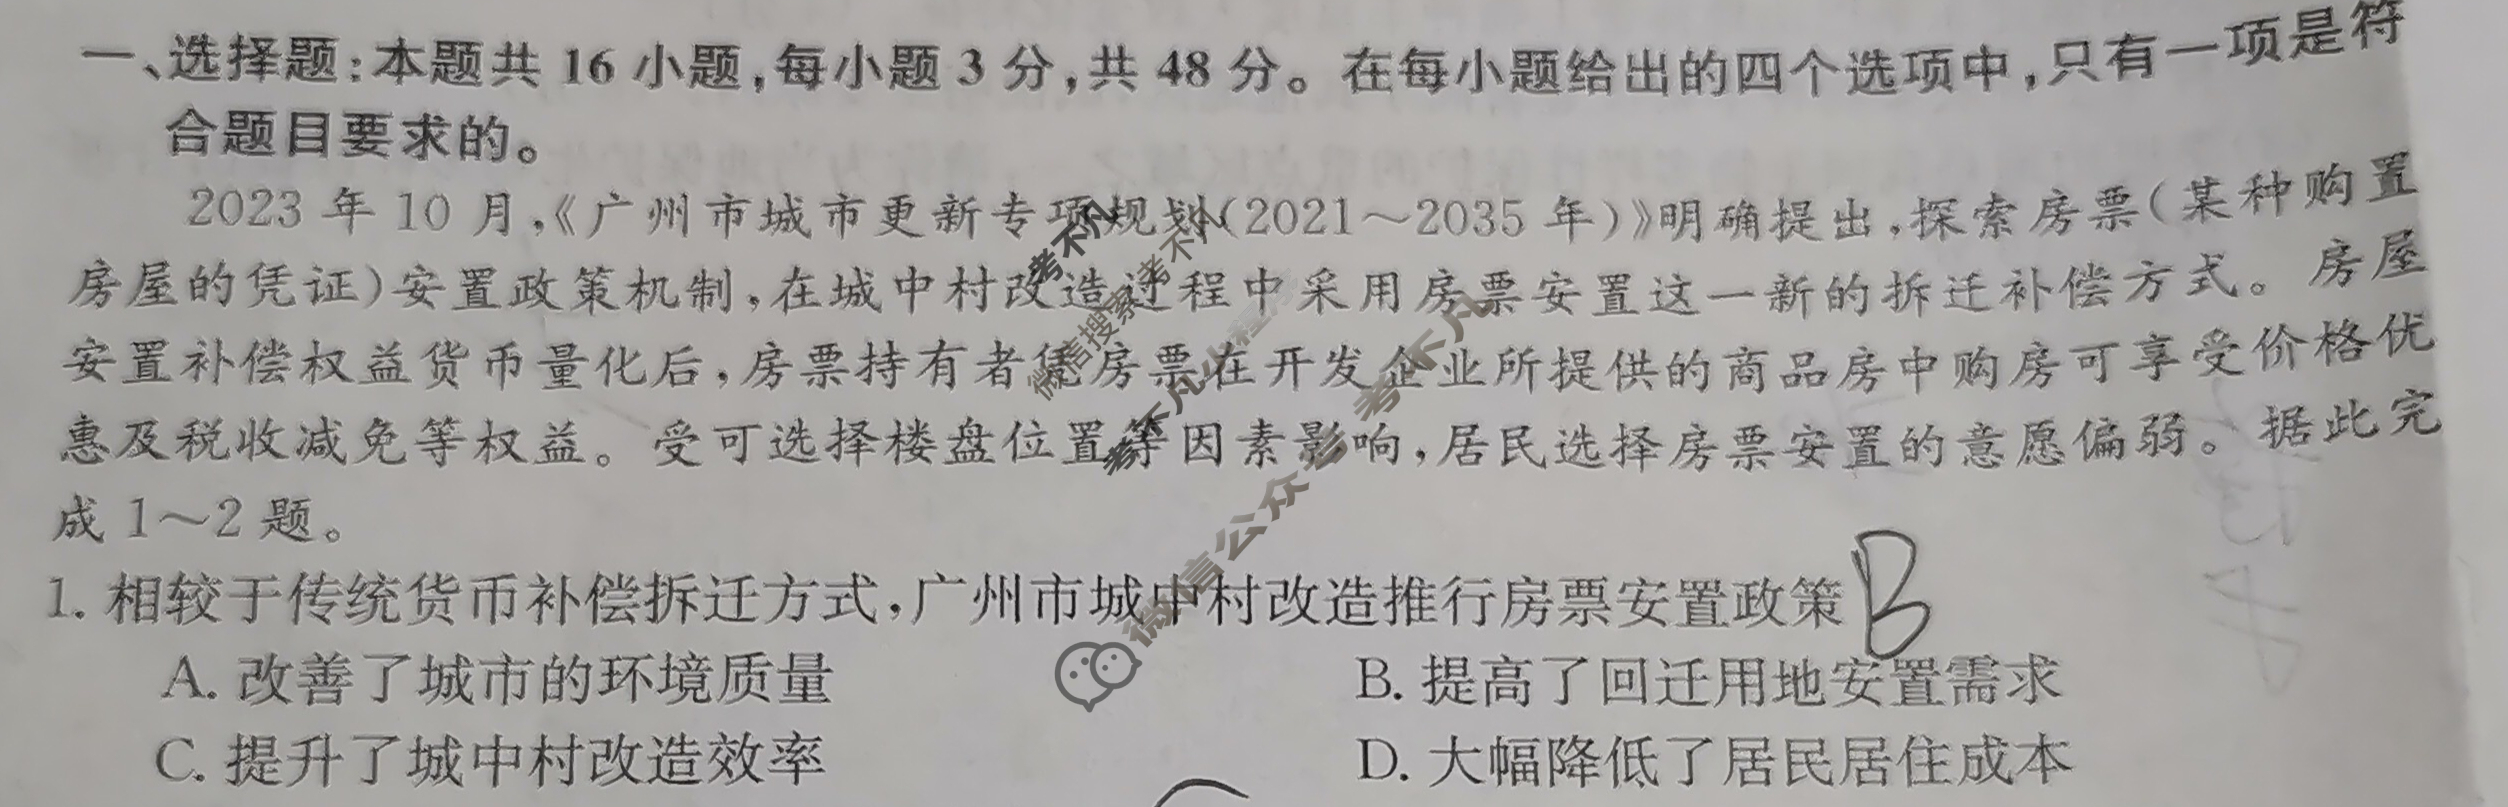 一、选择题:本题共 16 小题,每小题 3 分,共 48 分。在每小题给出的四个选项中,只有一项是符
合题目要求的。
2023 年 10 月,《广州市城市更新专项规划(2021～2035 年)》明确提出,探索房票(某种购置
房屋的凭证)安置政策机制,在城中村改造过程中采用房票安置这一新的拆迁补偿方式。房屋
安置补偿权益货币量化后,房票持有者凭房票在开发企业所提供的商品房中购房可享受价格优
惠及税收减免等权益。受可选择楼盘位置等因素影响,居民选择房票安置的意愿偏弱。据此完
成 1～2 题。
1. 相较于传统货币补偿拆迁方式,广州市城中村改造推行房票安置政策 B
A. 改善了城市的环境质量
B. 提高了回迁用地安置需求
C. 提升了城中村改造效率
D. 大幅降低了居民居住成本
考不凡
微信搜索考不凡
考不凡小程序
微信公众号 考不凡